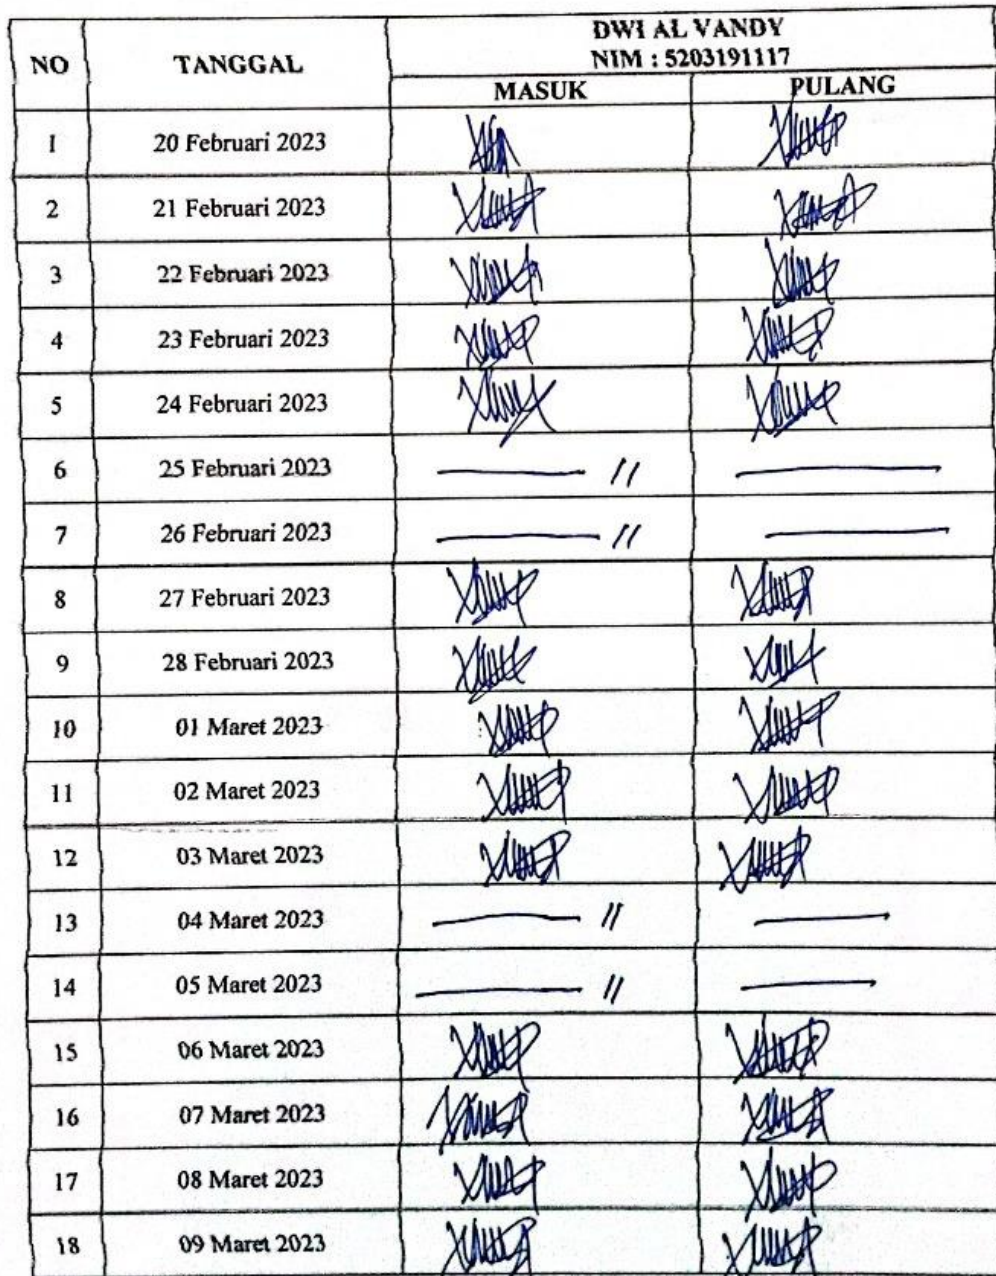 NO TANGGAL DWI AL VANDY
NIM : 5203191117
MASUK PULANG
1 20 Februari 2023
2 21 Februari 2023
3 22 Februari 2023
4 23 Februari 2023
5 24 Februari 2023
6 25 Februari 2023
7 26 Februari 2023
8 27 Februari 2023
9 28 Februari 2023
10 01 Maret 2023
11 02 Maret 2023
12 03 Maret 2023
13 04 Maret 2023
14 05 Maret 2023
15 06 Maret 2023
16 07 Maret 2023
17 08 Maret 2023
18 09 Maret 2023